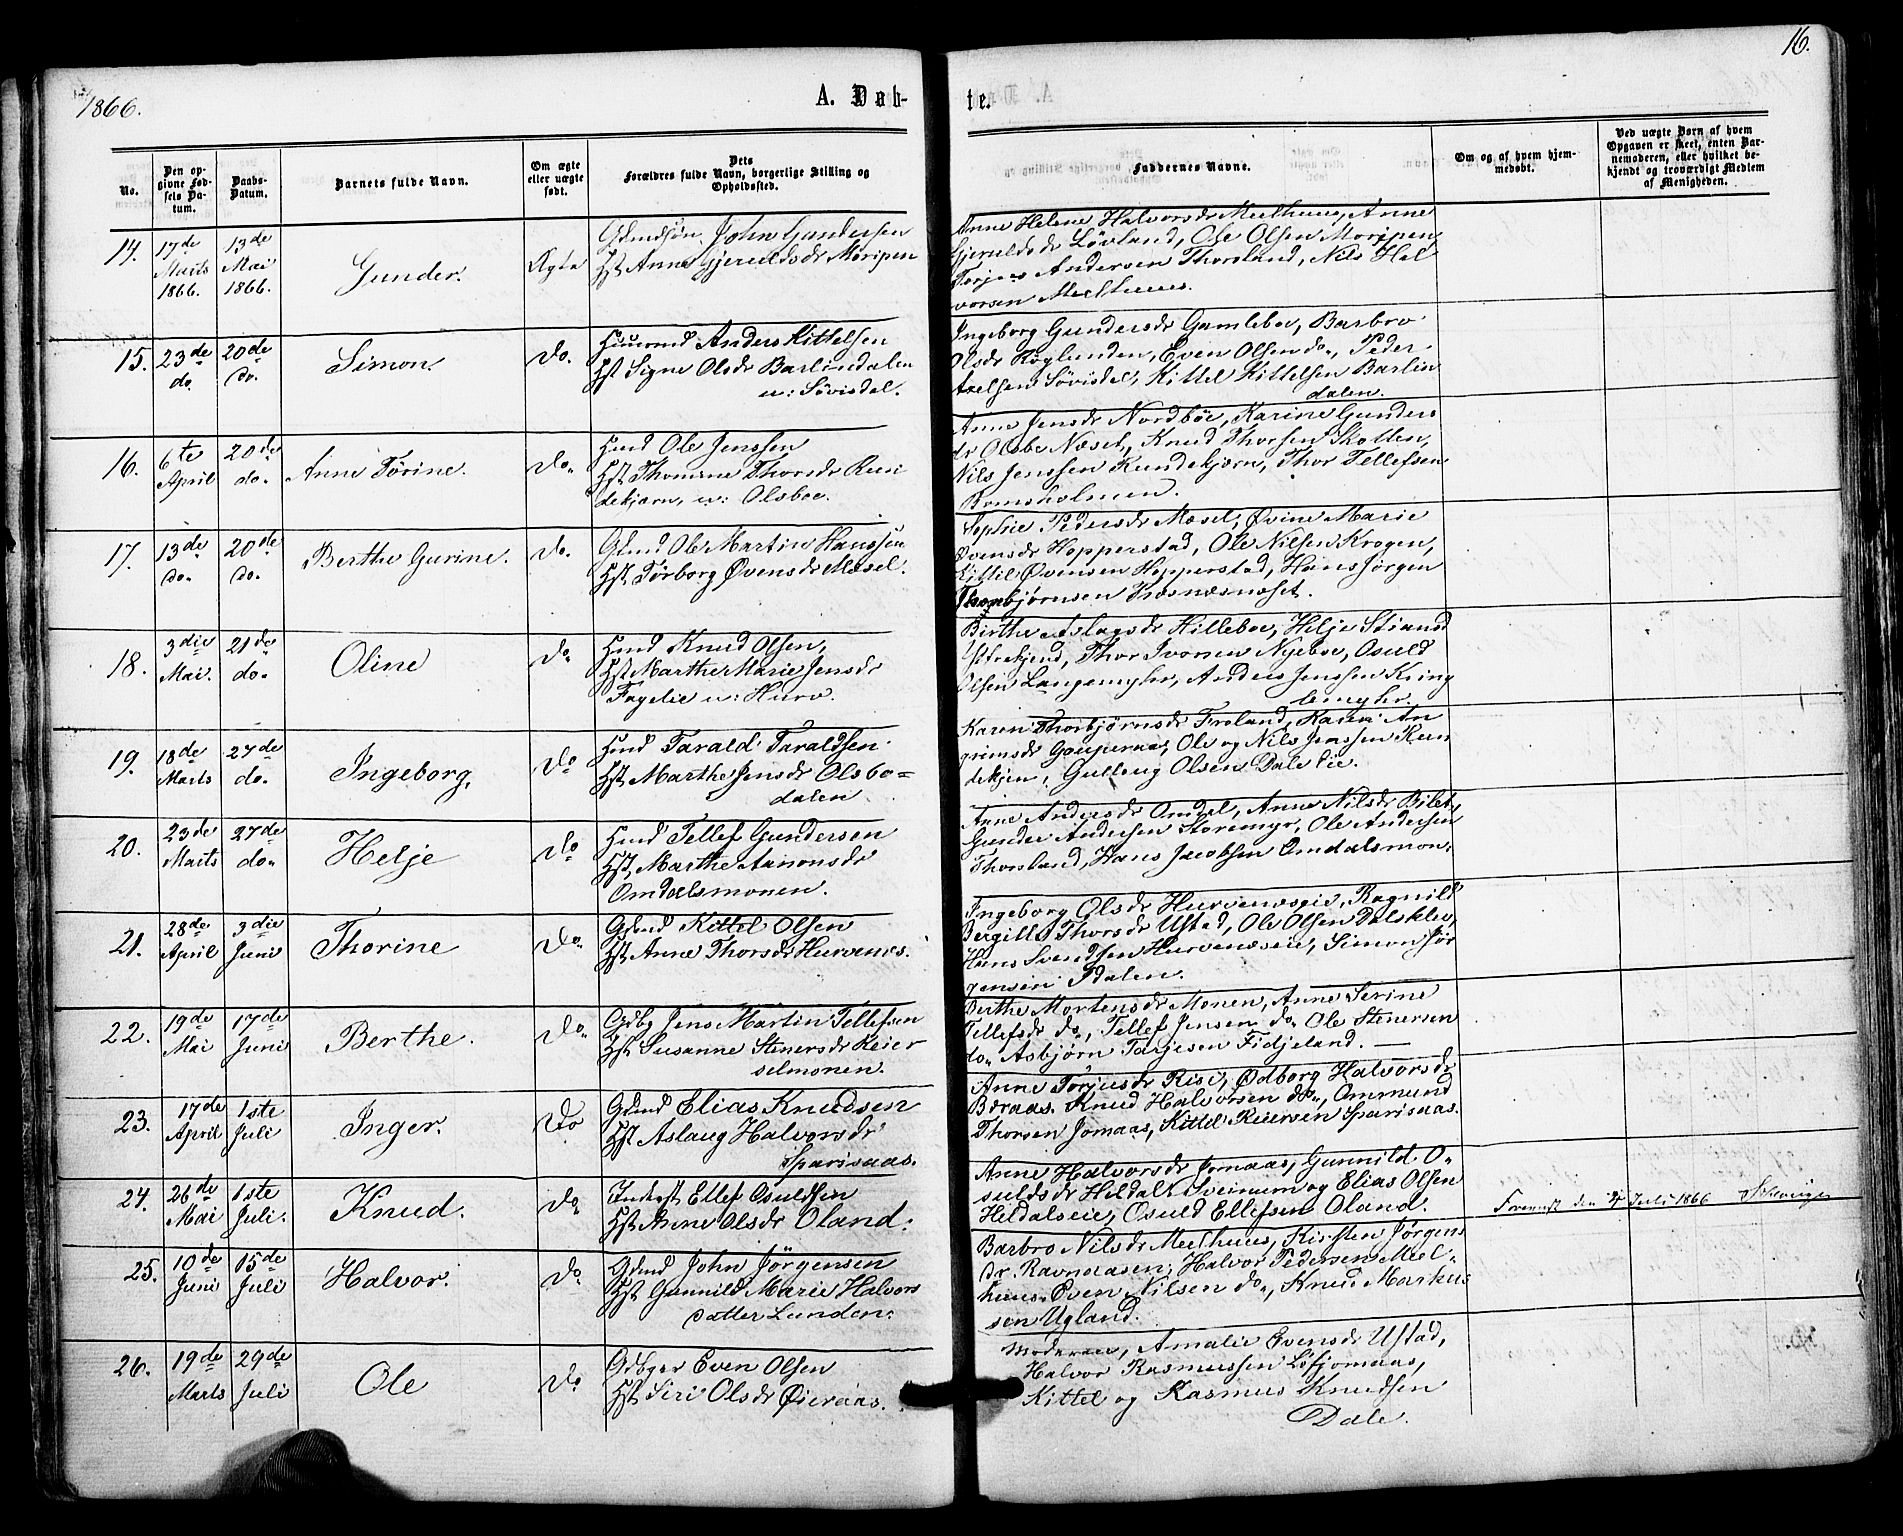 1866.
A. Døb-
te.
16.
No.
Den op-
givne Fød-
sels Da-
tum.
Daabs-
Datum.
Barnets fulde Navn.
Om ægte
eller uægte
født.
Dets
Forældres fulde Navn, borgerlige Stilling og
Opholdssted.
Faddernes Navne.
Om og af hvem hjem-
medøbt.
Ved uægte Børn af hvem
Opgaven er skeet, enten Bar-
nemoderen, eller hvilket be-
kjendt og troværdigt Medlem
af Menigheden.
14.
17de
Marts
1866.
13de
Mai
1866.
Gunder.
Ægte
John Gundersen
Hst Anne Gjeruldsdr Moripen
Anne Helene Halvorsdr Meelhuus, Anne
Gjeruldsdr Løvland, Ole Olsen Moripen,
Torjus Andersen Thorsland, Nils Hal
vorsen Meelhuus.
15.
23de
do.
20de
do.
Simon.
Do.
Huusmd Anders Kittelsen
Hst Signe Olsdr Barlindalen
u: Søvisdal.
Ingeborg Gundersdr Gamleboe, Barbro
Olsdr Røglunden, Even Olsen do., Peder
Axelsen Søvisdel, Kittel Kittelsen Barlin
dalen.
16.
6te
April
20de
do.
Anne Tørine.
Do.
Hmd Ole Jenssen
Hst Thomine Thorsdr Run
dekjærn, u: Olsboe.
Anne Jensdr Nordbøe, Karine Gunders
dr Olsbo Næset, Knud Thorsen Skotten,
Nils Jenssen Rundekjærn, Thor Tellefsen
Bomsholmen.
17.
13de
do.
20de
do.
Berthe Gurine.
Do.
Gbmd Ole Martin Hanssen
Hst Tørborg Øvensdr Mæsel.
Sophie Pedersdr Mæsel, Øvine Marie
Øvensdr Hopperstad, Ole Nilsen Krogen,
Kittil Øvensen Hopperstad, Hans Jørgen
Thorbjørnsen Næsnæsnæset.
18.
3die
Mai.
21de
do.
Oline
Do.
Hmd Knud Olsen,
Hst Marthe Marie Jensdr
Fagelie u: Hurv
Birthe Aslagsdr Hilleboe, Helje
Thor Iversen Nyeboe, Osuld
Olsen Langemyhr, Anders Jenssen Kring
lemyhr.
19.
18de
Marts
27de
do.
Ingeborg,
Do
Hmd Tarald Taraldsen
Hst Marthe Jensdr Olsbo=
dalen
Karen Thorbjørnsdr Froland, Karen An
grimsdr Gaupernaa, Ole og Nils Jenssen Run
dekjen, Gulleug Olsen Dale Eie.
20.
23de
Marts
27de
do.
Helje
Do
Hmd Tellef Gundersen
Hst, Marthe Aanonsdr
Omdalsmonen.
Anne Andersdr Omdel, Anne Nilsdr Bilet,
Gunder Andersen Storemyr, Ole Andersen
Thorsland, Hans Jacobsen Omdalsmon.
21.
28de
April
3die
Juni
Thorine
Do.
Gbmd Kittel Olsen
Hst Anne Thorsdr Hurvenes.
Ingeborg Olsdr Hurvenæseie, Ragnild
Bergitte Thorsdr Ustad, Ole Olsen Dalsklev,
Hans Svendsen Hurvenæseie, Simon Jør
gensen Dalen.
22.
19de
Mai
17de
Juni
Berthe.
Do.
Gdbg Jens Martin Tellefsen
Hst Susanne Stenersdr Reier
selmonen.
Berthe Mortensdr Monen, Anne Serine
Tellefsdr do., Tellef Jensen do. Ole Stenersen
do. Asbjørn Tarjesen Fidjeland.
23.
17de
April
1ste
Juli
Inger.
Do
Gbmd Elias Knudsen
Hst Aslaug Halvorsdr
Sparsaas.
Anne Torjusdr Rise, Ødborg Halvorsdr
Beraas. Knud Halvorsen do., Ommund
Thorsen Jomaas, Kittel Reiersen Sparsaas.
24.
26de
Mai
1ste
Juli.
Knud.
Do
Inderst Ellef Osuldsen
Hst Anne Olsdr Oland.
Anne Halvorsdr Jomaas, Gunnild O-
suldsdr Hildal, Sveinum og Elias Olsen
Hildalseie, Osuld Ellefsen Oland.
Juli 1866
25.
10de
Juni
15de
Juli
Halvor.
Do
Gbmd John Jørgensen
Hst Gunnild Marie Halvors
datter Lunden.
Barbro Nilsdr Meelhuus, Kirsten Jørgens
dr. Ravnaasen, Halvor Pedersen Meel-
huus. Even Nilsen do., Knud Markus
sen Ugland.
26.
19de
Marts
29de
Juli
Ole
Do
Gdbger Even Olsen
Hst Siri Olsdr Øieraas.
Moderen, Amalie Evensdr Ustad,
Halvor Rasmussen Løfjomaas,
Kittel og Rasmus Knudsen
Dale.